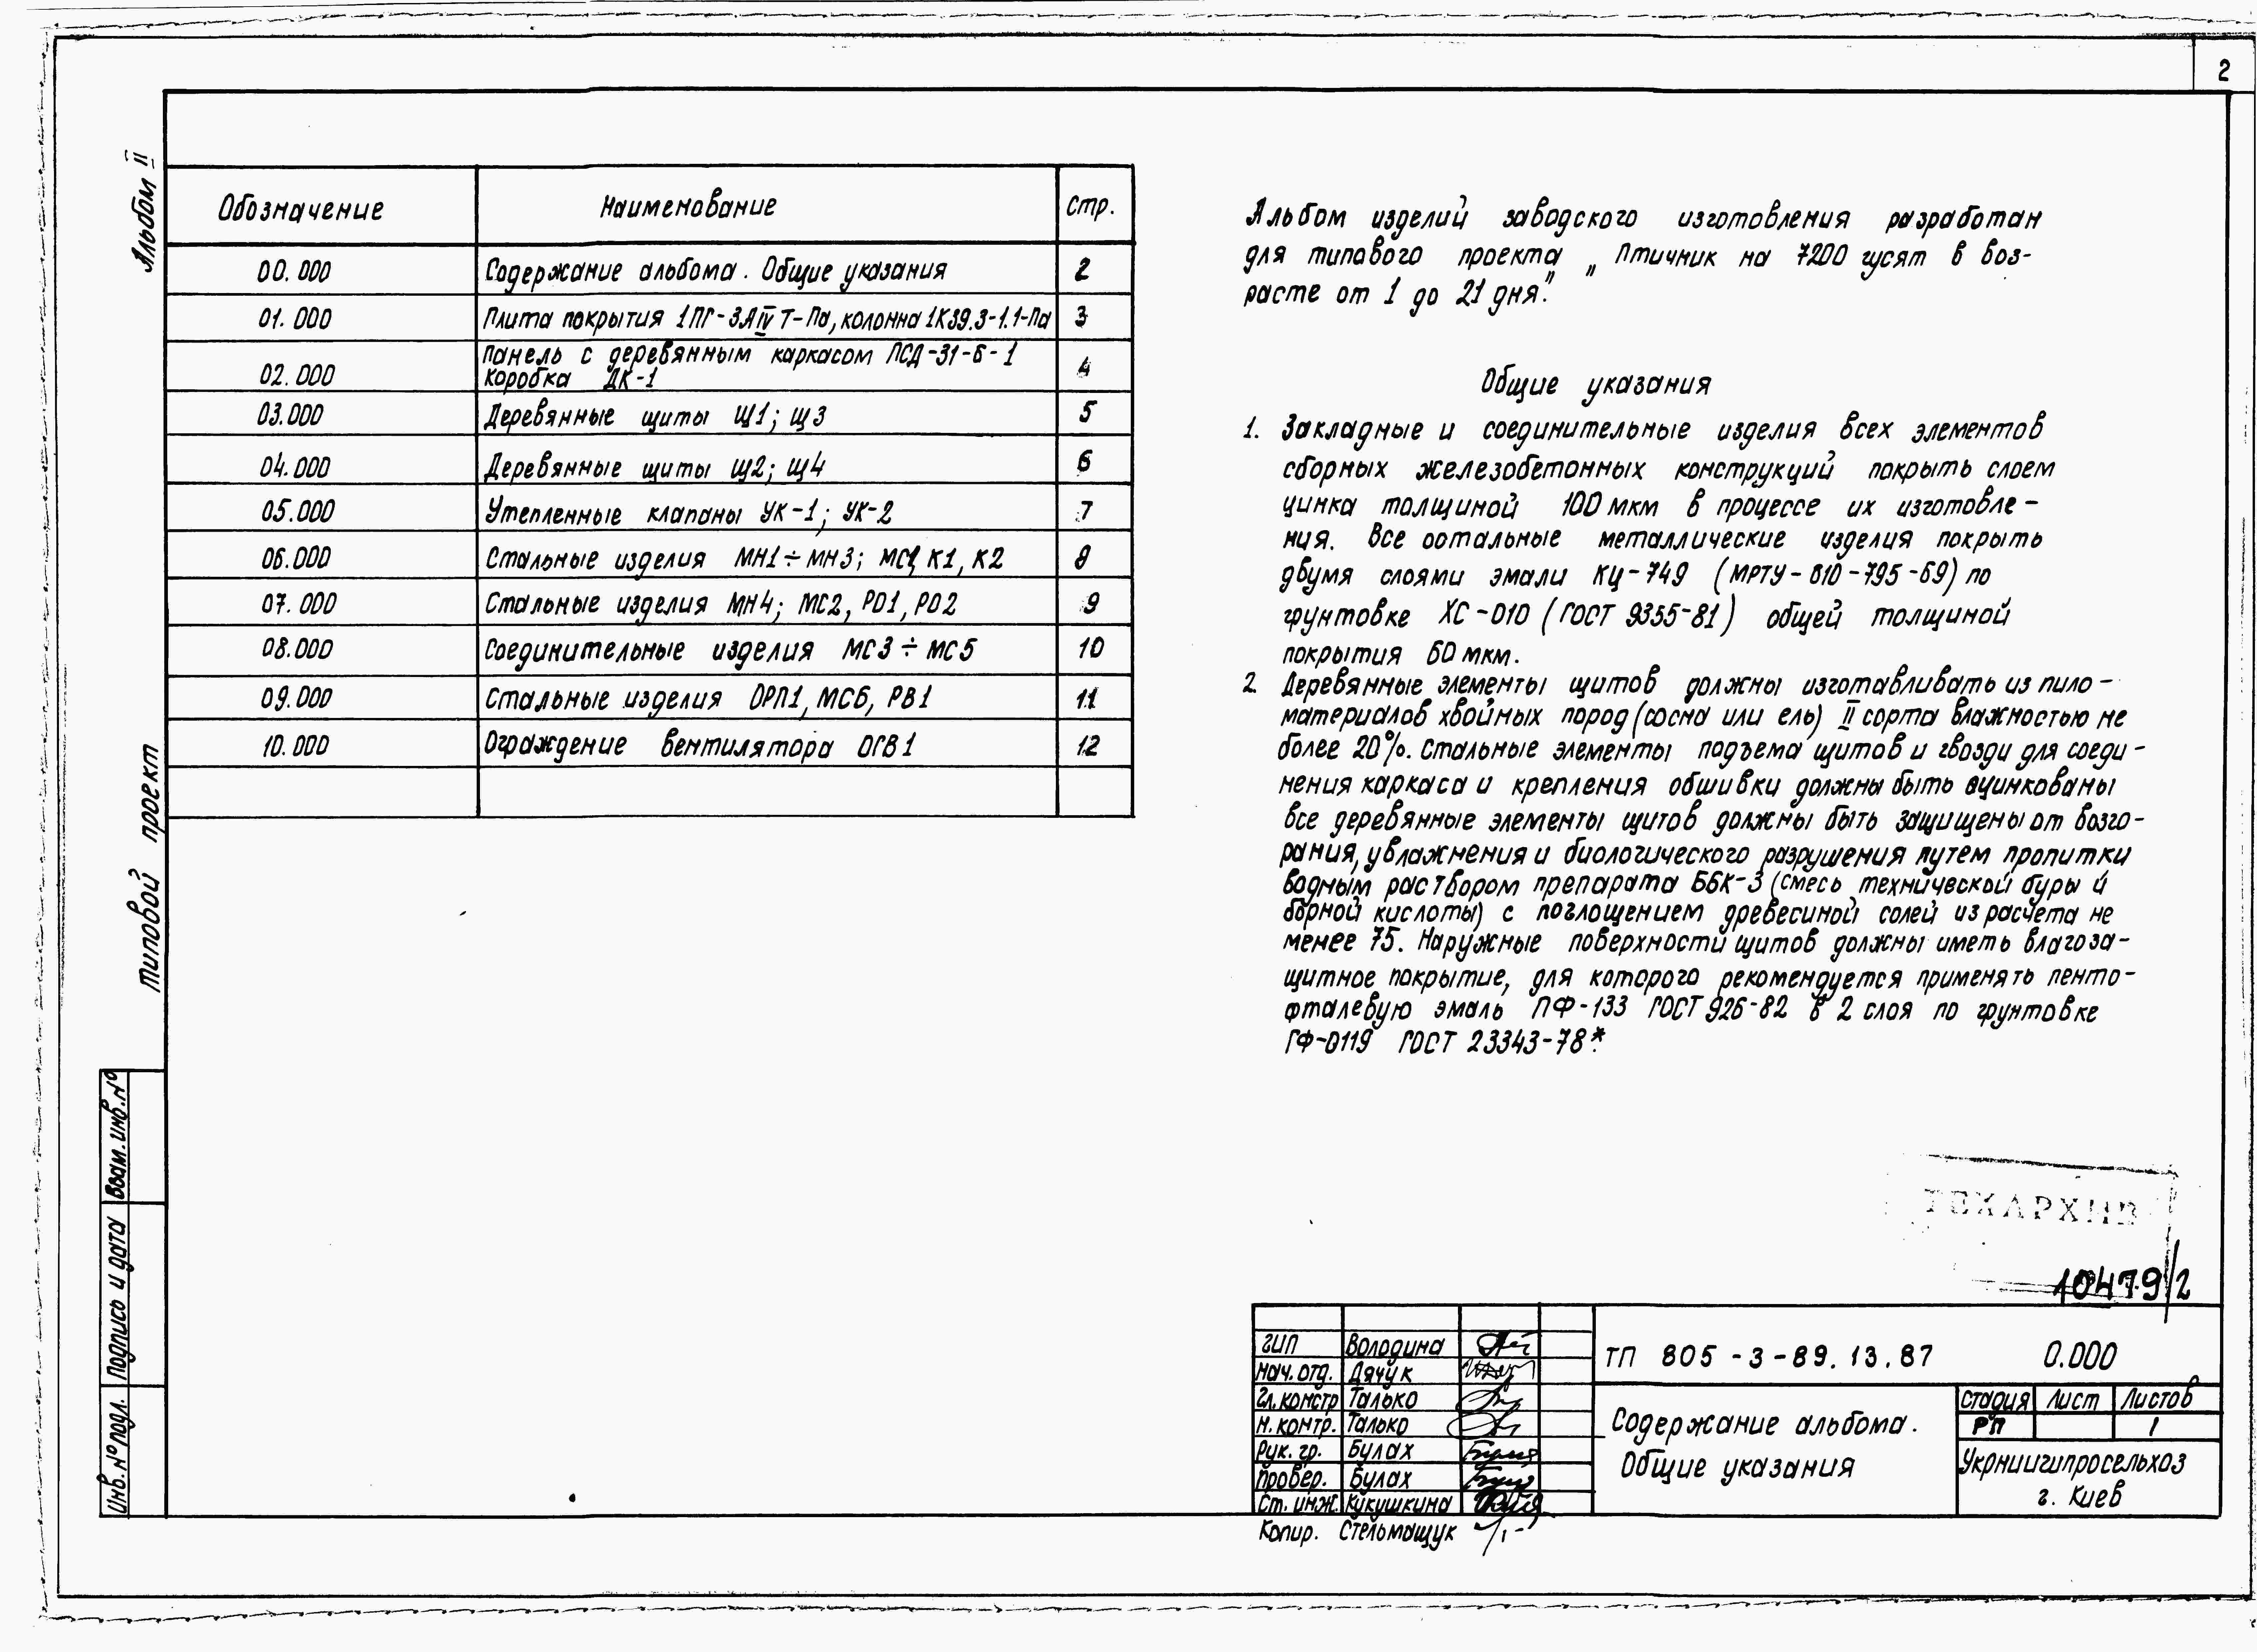 2
Альбом II
Типовой проект
Взам. инв. №
Подпись и дата
Инв. № подл.
Обозначение Наименование Стр.
00.000 Содержание альбома. Общие указания 2
01.000 Плита покрытия 1ПГ-3АIV Т-Па, колонна 1К39.3-1.1-Па 3
02.000 Панель с деревянным каркасом ПСД-31-6-1 4
Коробка ДК-1
03.000 Деревянные щиты Щ1; Щ3 5
04.000 Деревянные щиты Щ2; Щ4 6
05.000 Утепленные клапаны УК-1; УК-2 7
06.000 Стальные изделия МН1÷МН3; МС1, К1, К2 8
07.000 Стальные изделия МН4; МС2, РО1, РО2 9
08.000 Соединительные изделия МС3÷МС5 10
09.000 Стальные изделия ОРП1, МС6, РВ1 11
10.000 Ограждение вентилятора ОГВ1 12
Альбом изделий заводского изготовления разработан
для типового проекта „Птичник на 7200 гусят в воз-
расте от 1 до 21 дня".
Общие указания
1. Закладные и соединительные изделия всех элементов
сборных железобетонных конструкций покрыть слоем
цинка толщиной 100 мкм в процессе их изготовле-
ния. Все остальные металлические изделия покрыть
двумя слоями эмали КЦ-749 (МРТУ-610-795-69) по
грунтовке ХС-010 (ГОСТ 9355-81) общей толщиной
покрытия 60 мкм.
2. Деревянные элементы щитов должны изготавливать из пило-
материалов хвойных пород (сосна или ель) II сорта влажностью не
более 20%. Стальные элементы подъема щитов и гвозди для соеди-
нения каркаса и крепления обшивки должны быть оцинкованы
все деревянные элементы щитов должны быть защищены от возго-
рания, увлажнения и биологического разрушения путем пропитки
водным раствором препарата ББК-3 (смесь технической буры и
борной кислоты) с поглощением древесиной солей из расчета не
менее 75. Наружные поверхности щитов должны иметь влагоза-
щитное покрытие, для которого рекомендуется применять пенто-
фталевую эмаль ПФ-133 ГОСТ 926-82 в 2 слоя по грунтовке
ГФ-0119 ГОСТ 23343-78*.
ТЕХАРХИВ
10479/2
ГИП Володина
Нач. отд. Дячук
Гл. констр Талько
Н. контр. Талько
Рук. гр. Булах
Провер. Булах
Ст. инж. Кукушкина
Копир. Стельмащук
ТП 805-3-89.13.87 0.000
Содержание альбома.
Общие указания
Стадия Лист Листов
РП 1
Укрниигипросельхоз
г. Киев